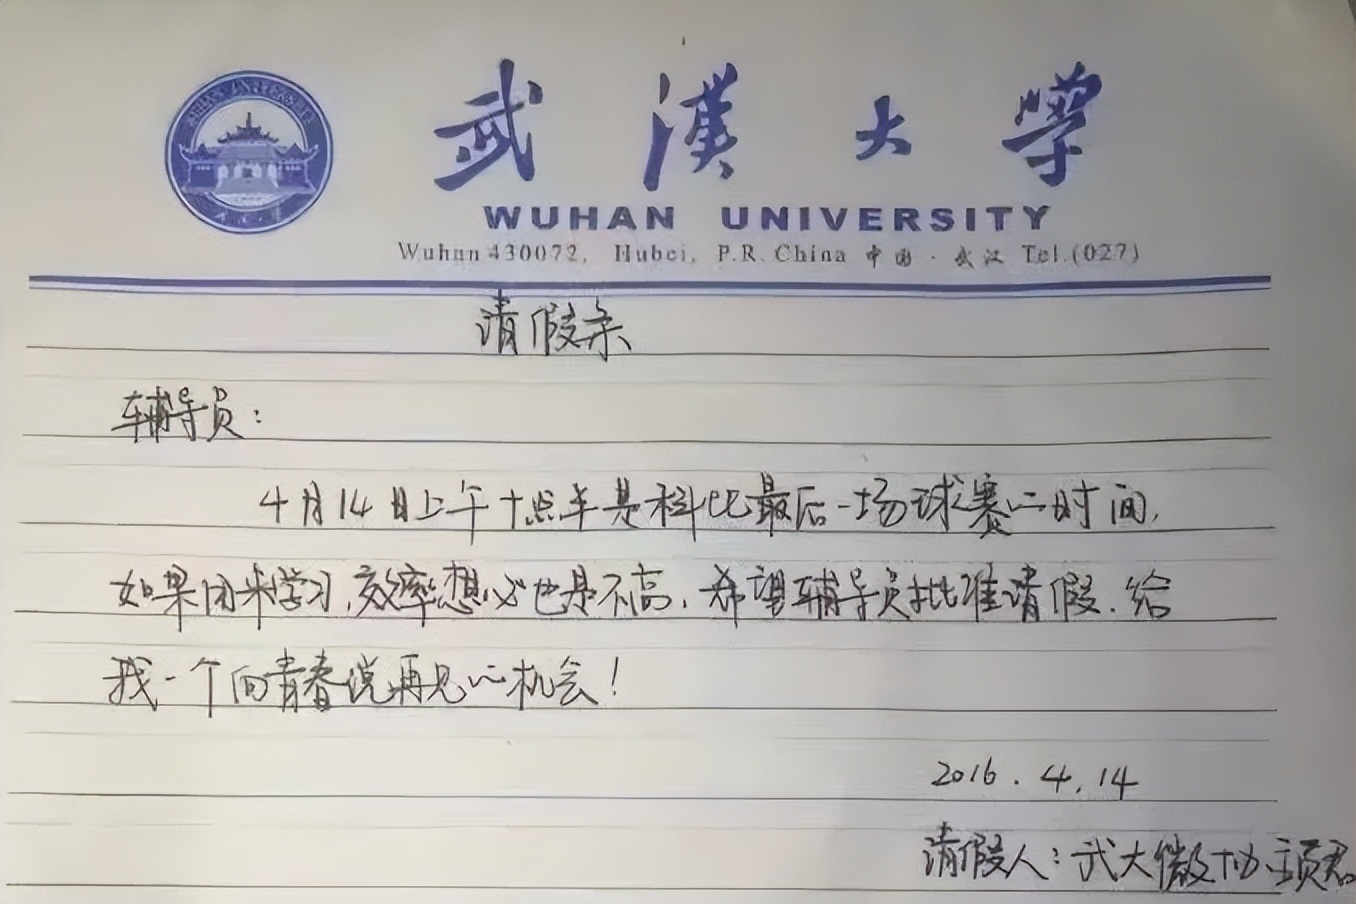 武漢大學
WUHAN UNIVERSITY
Wuhan 430072, Hubei, P.R. China 中国·武汉 Tel.(027)
请假条
辅导员：
4月14日上午十点半是科比最后一场球赛的时间,
如果团来学习,效率想必也是不高,希望辅导员批准请假,给
我一个向青春说再见的机会!
2016.4.14
请假人：武大微协